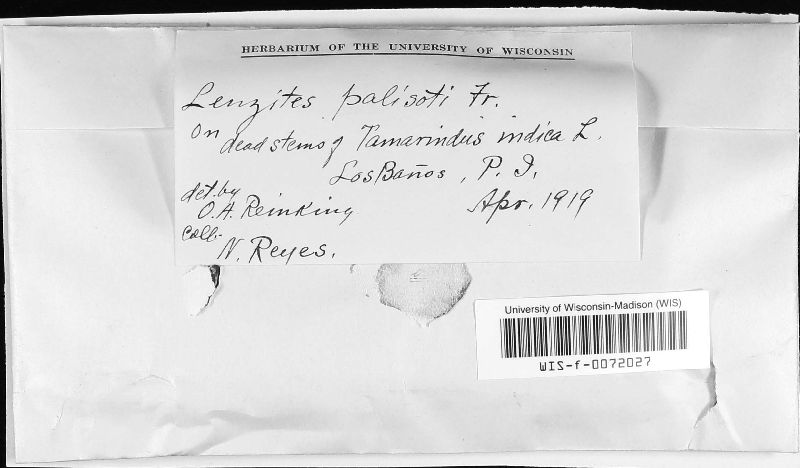 HERBARIUM OF THE UNIVERSITY OF WISCONSIN
Lenzites palisoti Fr.
On dead stems of Tamarindus indica L.
Los Baños, P. I.
det. by
O. A. Reinking
Apr. 1919
Coll.
N. Reyes.
University of Wisconsin-Madison (WIS)
WIS-f-0072027